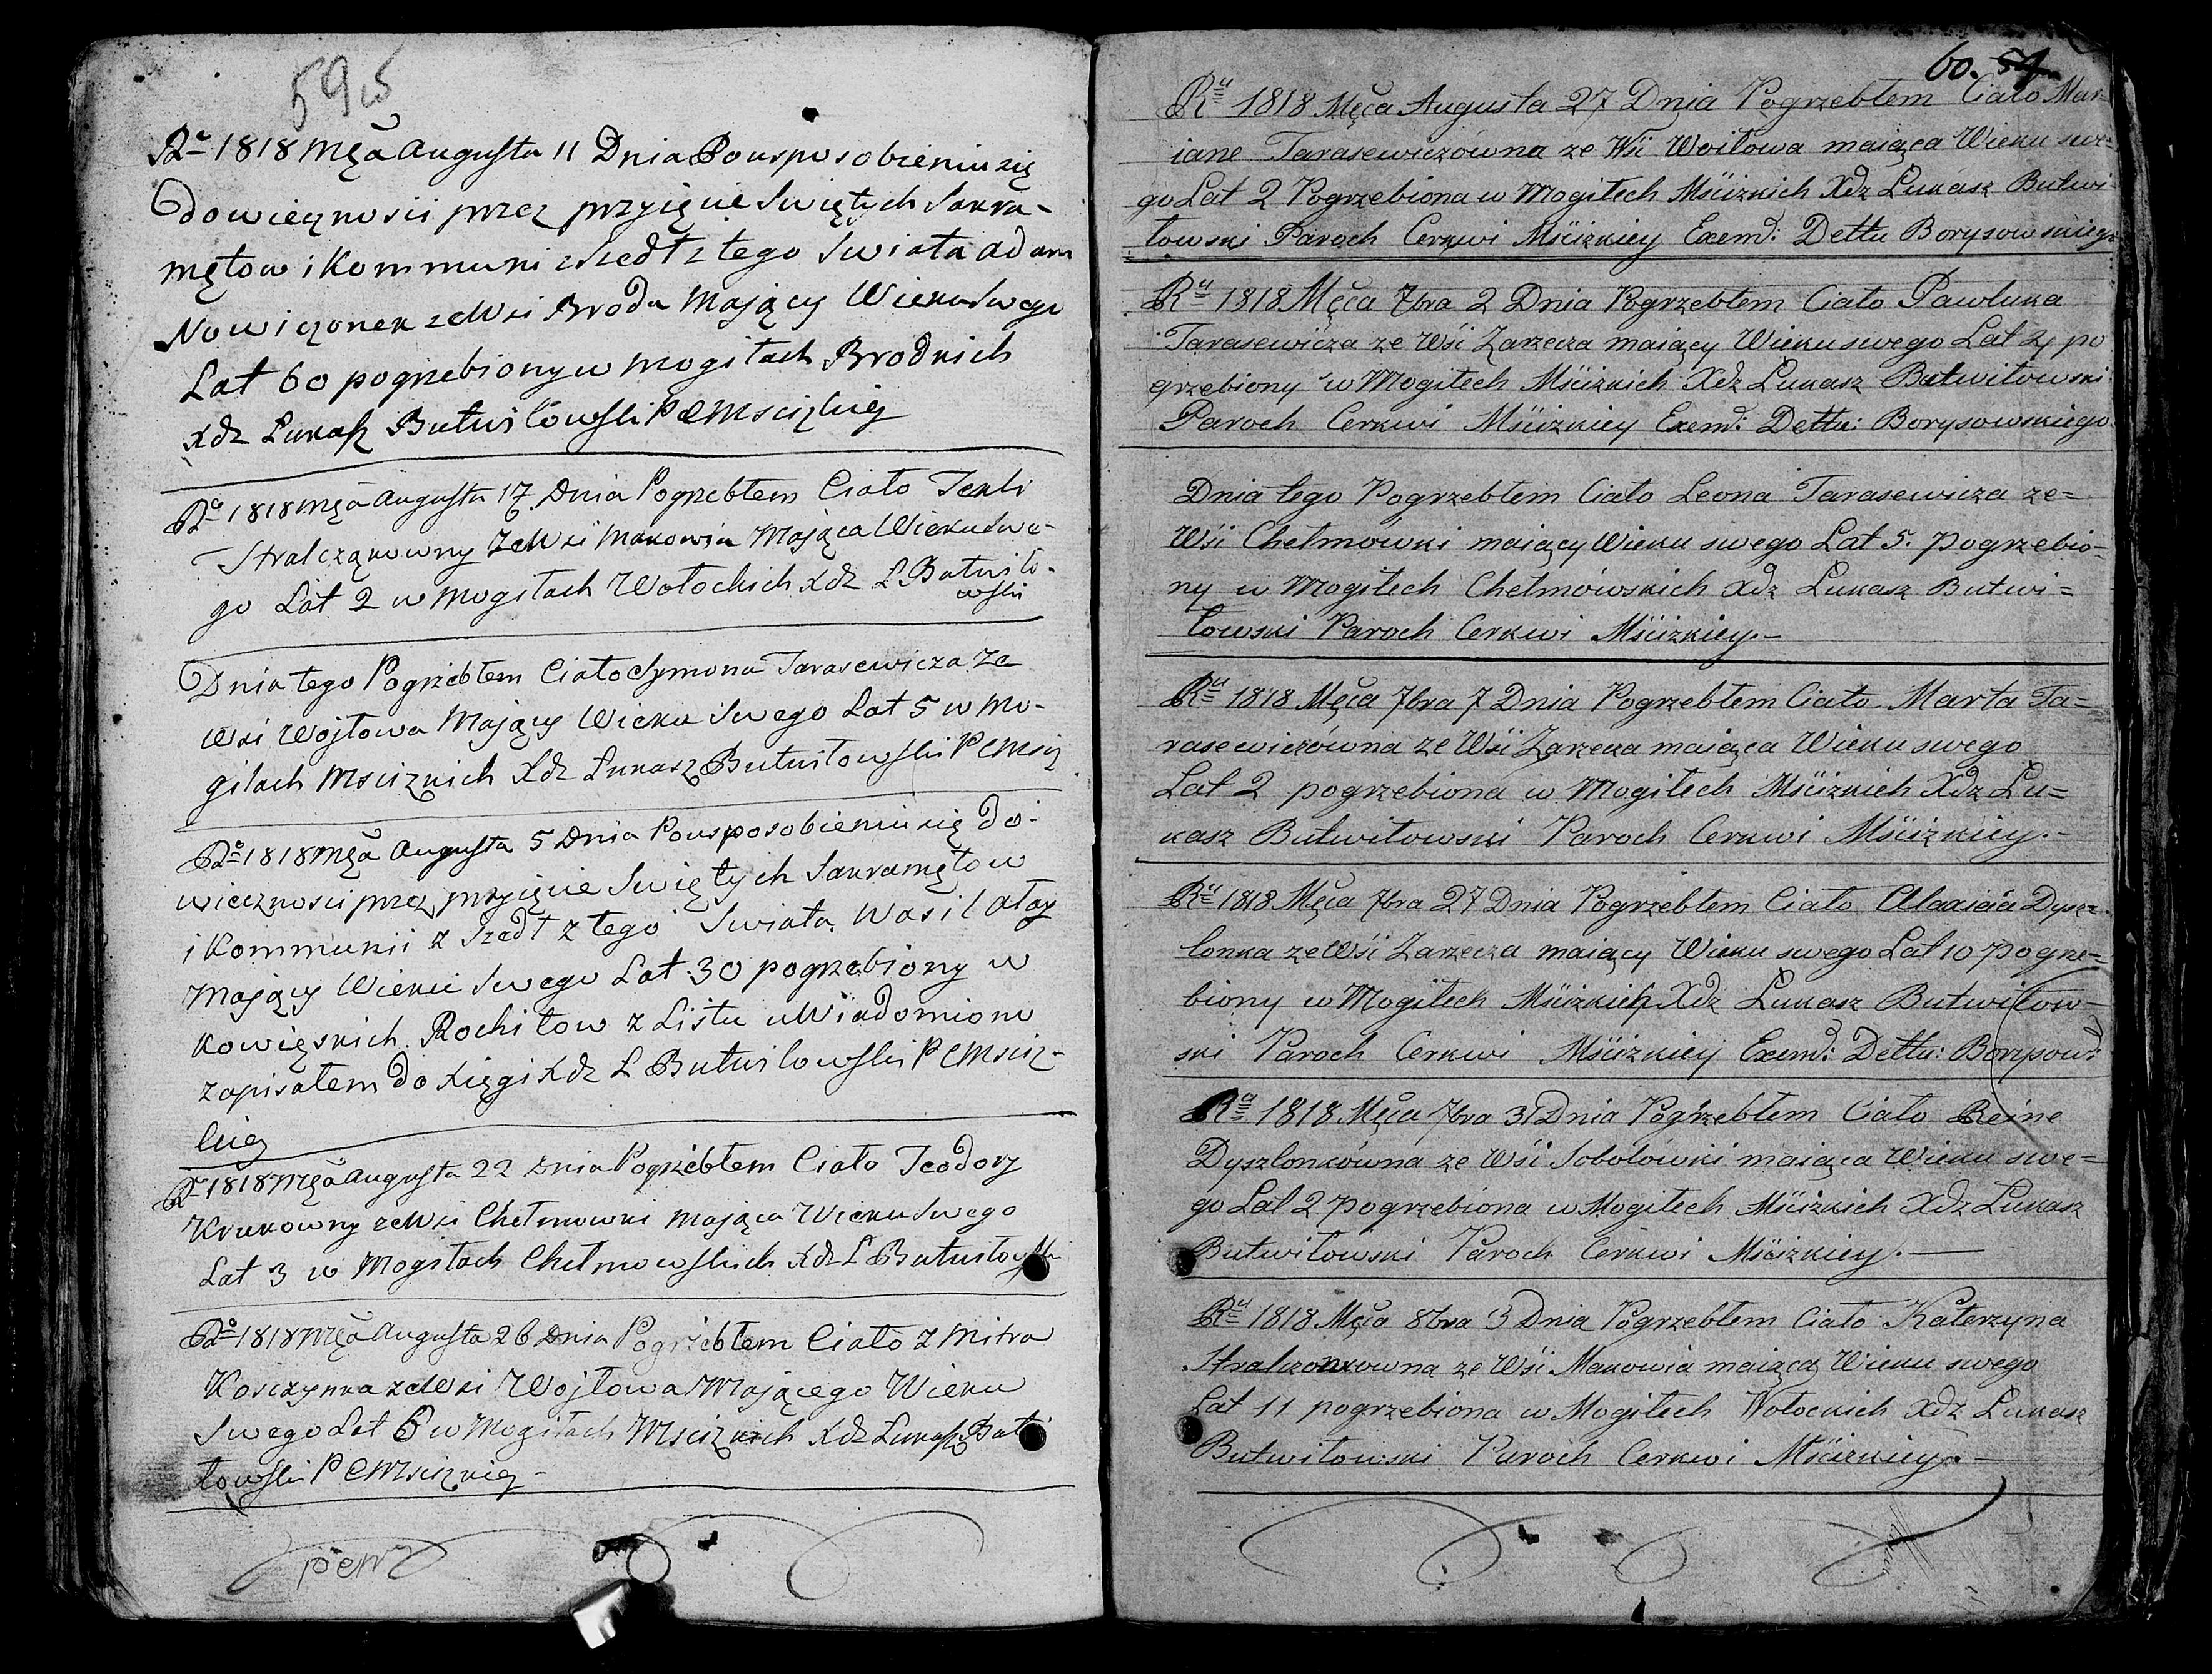 59
Ru 1818 Męca Augusta 11 Dnia Po usposobieniu się
do wiecznosii przez przyięcie Swiętych Sakra-
mętow i Kommuni zszedł z tego Swiata Adam
Nowiczonek ze Wsi Broda Mający Wieku Swego
Lat 60 pogrzebiony w mogiłach Brodkich
Xdz Łukasz Butwiłowski P C Mscizkiey
Ru 1818 Męca Augusta 17 Dnia Pogrzebłem Ciało Tekli
Stralcząkowny ze Wsi Makowia Mająca Wieku Swe-
go Lat 2 w Mogiłach Wołockich Xdz Ł Butwiło-
wski
Dnia tego Pogrzebłem Ciało Symona Tarasewicza Ze
Wsi Wojtowa Mający Wieku Swego Lat 5 w Mo-
giłach Mscizkich Xdz Łukasz Butwiłowski P C Msciz
Ru 1818 Męca Augusta 5 Dnia Po usposobieniu się do-
wiecznosci przez przyięcie Swiętych Sakramętow
i Kommunii z Szedł z tego Swiata Wasil Ałay
Mający Wieku Swego Lat 30 pogrzebiony w
z Listu uWiadomiony
zapisałem do Xięgi Xdz Ł Butwiłowski P C Msciz-
kiey
Ru 1818 Męca Augusta 22 Dnia Pogrzebłem Ciało Teodory
Krukowny ze Wsi Chełmowki Mająca Wieku Swego
Lat 3 w Mogiłach Chełmowskich Xdz Ł Butwiłowski
Ru 1818 Męca Augusta 26 Dnia Pogrzebłem Ciało Zmitra
Kosczynka ze Wsi Wojtowa Mającego Wieku
Swego Lat 6 w Mogiłach Mscizkich Xdz Łukasz Butwi
łowski P C Mscizkiey -
60. 59
Ru 1818 Męca Augusta 27 Dnia Pogrzebłem Ciało Mar=
iane Tarasewiczówna ze Wsi Woitowa maiąca Wieku swe=
go Lat 2 Pogrzebiona w Mogiłech Mścizkich Xdz Łukasz Butwi-
łowski Paroch Cerkwi Mścizkiey Exemd: Dettu Borysowskiego
Ru 1818 Męca 7bra 2 Dnia Pogrzebłem Ciało Pawluka
Tarasewicza ze Wśi Zarzecza maiący Wieku swego Lat 2, po
grzebiony w Mogiłech Mścizkich Xdz Łukasz Butwiłowski
Paroch Cerkwi Mścizkiey Exemd: Dettu: Borysowskiego.
Dnia tego Pogrzebłem Ciało Leona Tarasewicza ze=
Wśi Chełmówki maiący Wieku swego Lat 5. pogrzebio-
ny w Mogiłech Chełmówskich Xdz Łukasz Butwi=
łowski Paroch Cerkwi Mścizkiey.-
Ru 1818 Męca 7bra 7 Dnia Pogrzebłem Ciało Marta Ta=
rasewiczówna ze Wśi Zarzecza maiąca Wieku swego
Lat 2 pogrzebiona w Mogiłech Mścizkich Xdz Łu=
kasz Butwiłowski Paroch Cerkwi Mścizkiey.-
Ru 1818 Męca 7bra 27 Dnia Pogrzebłem Ciało Alaxieia Dysz-
lonka ze Wśi Zarzecza maiący Wieku swego Lat 10 pogrze=
biony w Mogiłech Mścizkich Xdz Łukasz Butwiłow-
ski Paroch Cerkwi Mścizkiey Exemd: Dettu: Borysow:
Ru 1818 Męca 7bra 31 Dnia Pogrzebłem Ciało Reine
Dyszlonkówna ze Wśi Sobolówki maiąca Wieku swe=
go Lat 2 pogrzebiona w Mogiłech Mścizkich Xdz Łukasz
Butwiłowski Paroch Cerkwi Mścizkiey.-
Ru 1818 Męca 8bra 3 Dnia Pogrzebłem Ciało Katerzyna
Stralczonkowna ze Wśi Makowia maiąca Wieku swego
Lat 11 pogrzebiona w Mogiłech Wołockich Xdz Łukasz
Butwiłowski Paroch Cerkwi Mścizkiey.-